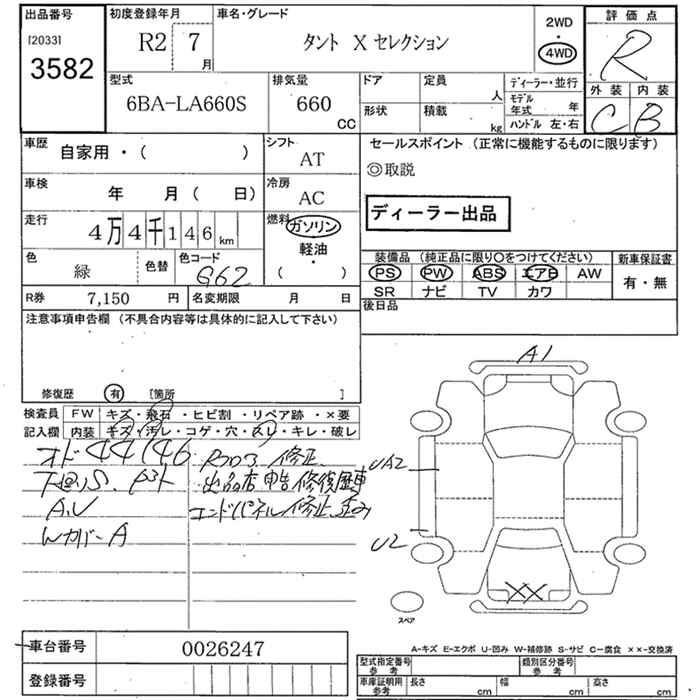 出品番号
[2033]
3582
初度登録年月
R2 7月
車名・グレード
タント X セレクション
2WD
・
4WD
評価点
R
型式
6BA-LA660S
排気量
660 CC
ドア
定員 人
形状
積載 kg
ディーラー・並行
モデル年式 年
ハンドル 左・右
外装 内装
C B
車歴
自家用・( )
シフト
AT
セールスポイント (正常に機能するものに限ります)
◎取説
車検
年 月( 日)
冷房
AC
ディーラー出品
走行
4万4千146km
燃料
ガソリン
軽油・
( )
色
緑
色替
色コード
G62
装備品 (純正品に限り○をつけてください)
PS PW ABS エアB AW
SR ナビ TV カワ
新車保証書
有・無
R券 7,150 円
名変期限 月 日
後日品
注意事項申告欄 (不具合内容等は具体的に記入して下さい)
修復歴 有 [箇所 ]
検査員 FW キズ・飛石・ヒビ割・リペア跡・×要
記入欄 内装 キズ・汚レ・コゲ・穴・スレ・キレ・破レ
オド 44146
下廻りS、
A.U
WカバーA
修正
出品店申告修復歴車
エンドパネル修正、歪み
A1
UA2
U2
XX
スペア
車台番号 0026247
登録番号
A-キズ E-エクボ U-凹み W-補修跡 S-サビ C-腐食 ××-交換済
型式指定番号 参考
類別区分番号 参考
車庫証明用 参考
長さ cm
幅 cm
高さ cm